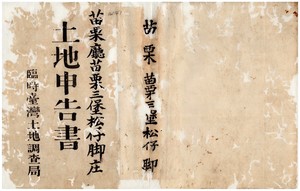 苗栗 苗栗三堡松仔脚
苗栗廳苗栗三堡松仔脚庄
土地申告書
臨時臺灣土地調查局